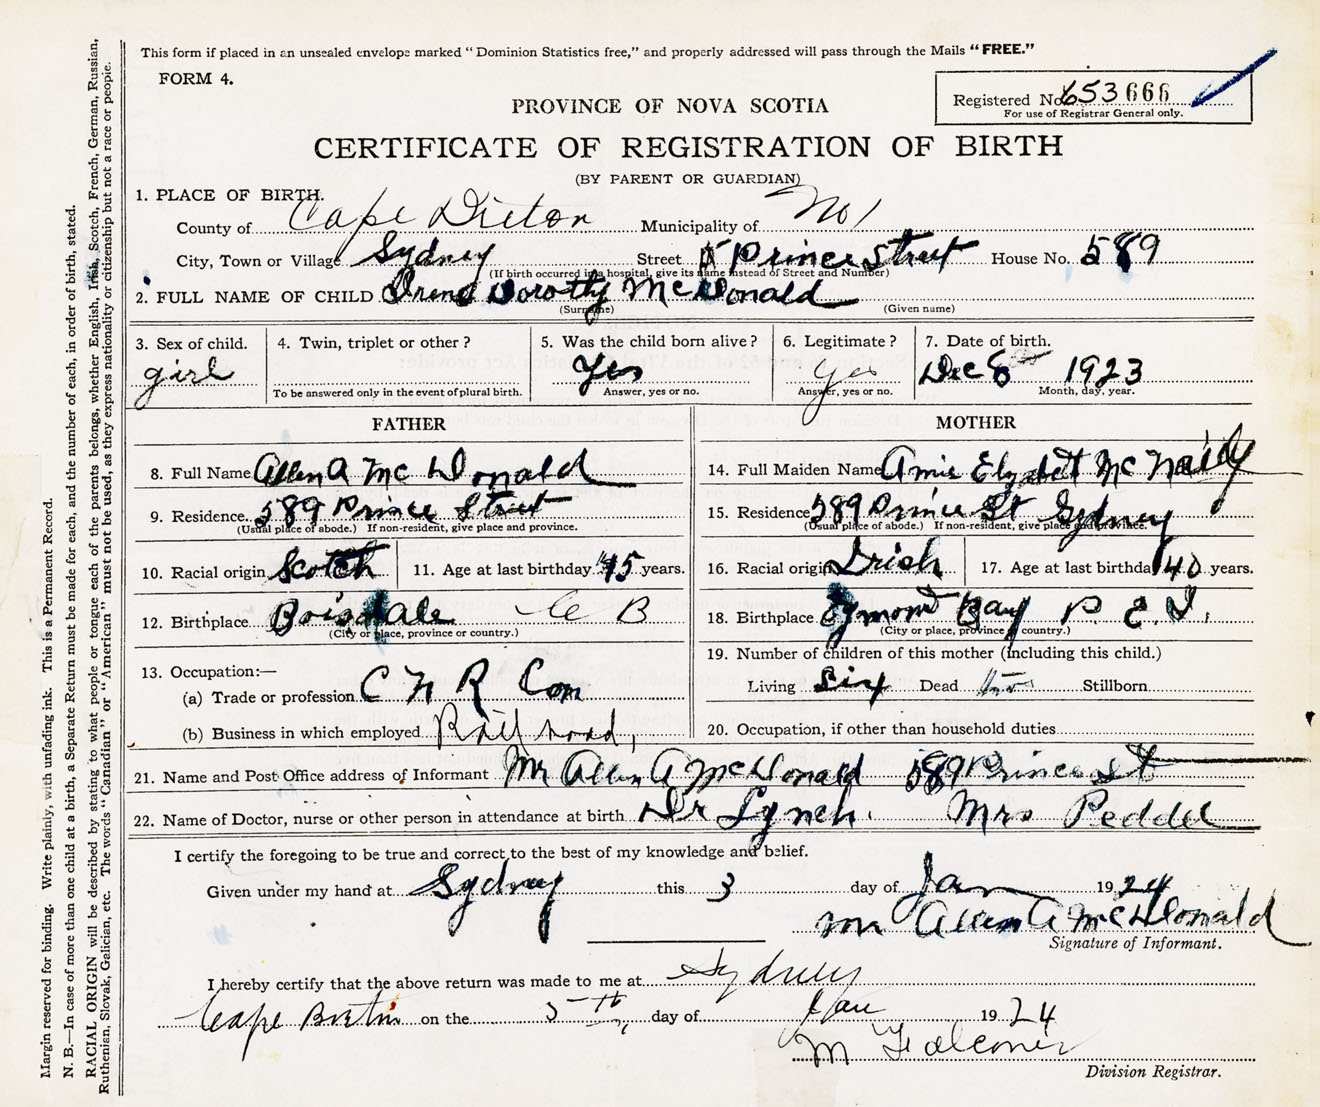 This form if placed in an unsealed envelope marked "Dominion Statistics free," and properly addressed will pass through the Mails "FREE."
FORM 4.
Registered No. 653666
For use of Registrar General only.
PROVINCE OF NOVA SCOTIA
CERTIFICATE OF REGISTRATION OF BIRTH
(BY PARENT OR GUARDIAN)
1. PLACE OF BIRTH.
County of Cape Breton Municipality of No 1
City, Town or Village Sydney Street Prince Street House No. 589
(If birth occurred in a hospital, give its name instead of Street and Number)
2. FULL NAME OF CHILD Irene Dorothy McDonald
(Surname) (Given name)
3. Sex of child. girl
4. Twin, triplet or other?
To be answered only in the event of plural birth.
5. Was the child born alive? Yes
Answer, yes or no.
6. Legitimate? yes
Answer, yes or no.
7. Date of birth. Dec 8th 1923
Month, day, year.
FATHER
8. Full Name Allen A McDonald
9. Residence. 589 Prince Street
(Usual place of abode.) If non-resident, give place and province.
10. Racial origin Scotch 11. Age at last birthday 45 years.
12. Birthplace Boisdale C B
(City or place, province or country.)
13. Occupation:—
(a) Trade or profession C N R Con
(b) Business in which employed Railroad,
MOTHER
14. Full Maiden Name Amie Elizabet
15. Residence 589 Prince St Sydney
(Usual place of abode.) If non-resident, give place and province.
16. Racial origin Irish 17. Age at last birthday 40 years.
18. Birthplace Egmont Bay P. E. I.
(City or place, province or country.)
19. Number of children of this mother (including this child.)
Living Six Dead two Stillborn
20. Occupation, if other than household duties
21. Name and Post Office address of Informant Mr Allen A McDonald 589 Prince St
22. Name of Doctor, nurse or other person in attendance at birth Dr Lynch. Mrs
I certify the foregoing to be true and correct to the best of my knowledge and belief.
Given under my hand at Sydney this 3 day of Jan 1924
Mr Allen A McDonald
Signature of Informant.
I hereby certify that the above return was made to me at Sydney
Cape Breton on the 5th, day of Jan 1924
M Falconer
Division Registrar.
Margin reserved for binding. Write plainly, with unfading ink. This is a Permanent Record.
N. B.—In case of more than one child at a birth, a Separate Return must be made for each, and the number of each, in order of birth, stated.
RACIAL ORIGIN will be described by stating to what people or tongue each of the parents belongs, whether English, Irish, Scotch, French, German, Russian,
Ruthenian, Slovak, Galician, etc. The words "Canadian" or "American" must not be used, as they express nationality or citizenship but not a race or people.